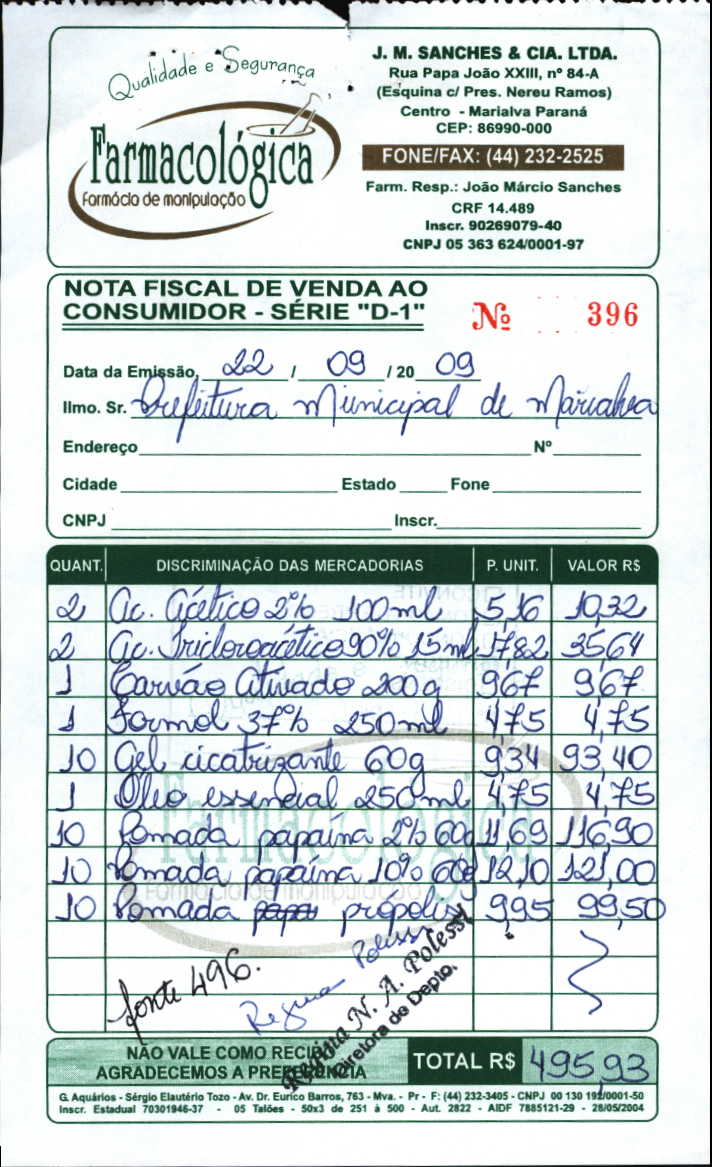 Qualidade e Segurança
Farmacológica
Farmácia de manipulação
J. M. SANCHES & CIA. LTDA.
Rua Papa João XXIII, nº 84-A
(Esquina c/ Pres. Nereu Ramos)
Centro - Marialva Paraná
CEP: 86990-000
FONE/FAX: (44) 232-2525
Farm. Resp.: João Márcio Sanches
CRF 14.489
Inscr. 90269079-40
CNPJ 05 363 624/0001-97
NOTA FISCAL DE VENDA AO
CONSUMIDOR - SÉRIE "D-1"
Nº 396
Data da Emissão, 22 / 09 / 20 09
Ilmo. Sr. Prefeitura Municipal de Marialva
Endereço Nº
Cidade Estado Fone
CNPJ Inscr.
QUANT. DISCRIMINAÇÃO DAS MERCADORIAS P. UNIT. VALOR R$
2 Ac. Acético 2% 100ml 5,16 10,32
2 Ac. Tricloroacético 90% 15ml 17,82 35,64
1 Carvão Ativado 200g 9,67 9,67
1 Formol 37% 250ml 4,75 4,75
10 Gel cicatrizante 60g 9,34 93,40
1 Óleo essencial 250ml 4,75 4,75
10 Pomada papaína 2% 60g 11,69 116,90
10 Pomada papaína 10% 60g 12,10 121,00
10 Pomada papa própolis 9,95 99,50
fonte 496.
Regina Polessi
Regina N. A. Polessi
Diretora de Depto.
NÃO VALE COMO RECIBO
AGRADECEMOS A PREFERÊNCIA
TOTAL R$ 495,93
G. Aquários - Sérgio Elautério Tozo - Av. Dr. Eurico Barros, 763 - Mva. - Pr - F: (44) 232-3405 - CNPJ 00 130 192/0001-50
Inscr. Estadual 70301946-37 - 05 Talões - 50x3 de 251 à 500 - Aut. 2822 - AIDF 7885121-29 - 28/05/2004